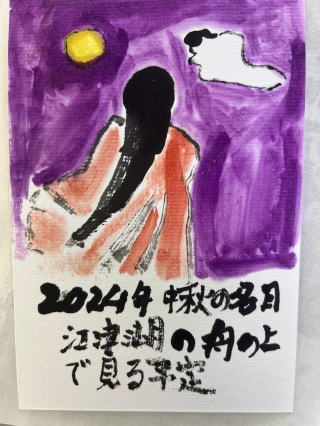 2024年 中秋の名月
江津湖の舟の上
で見る予定